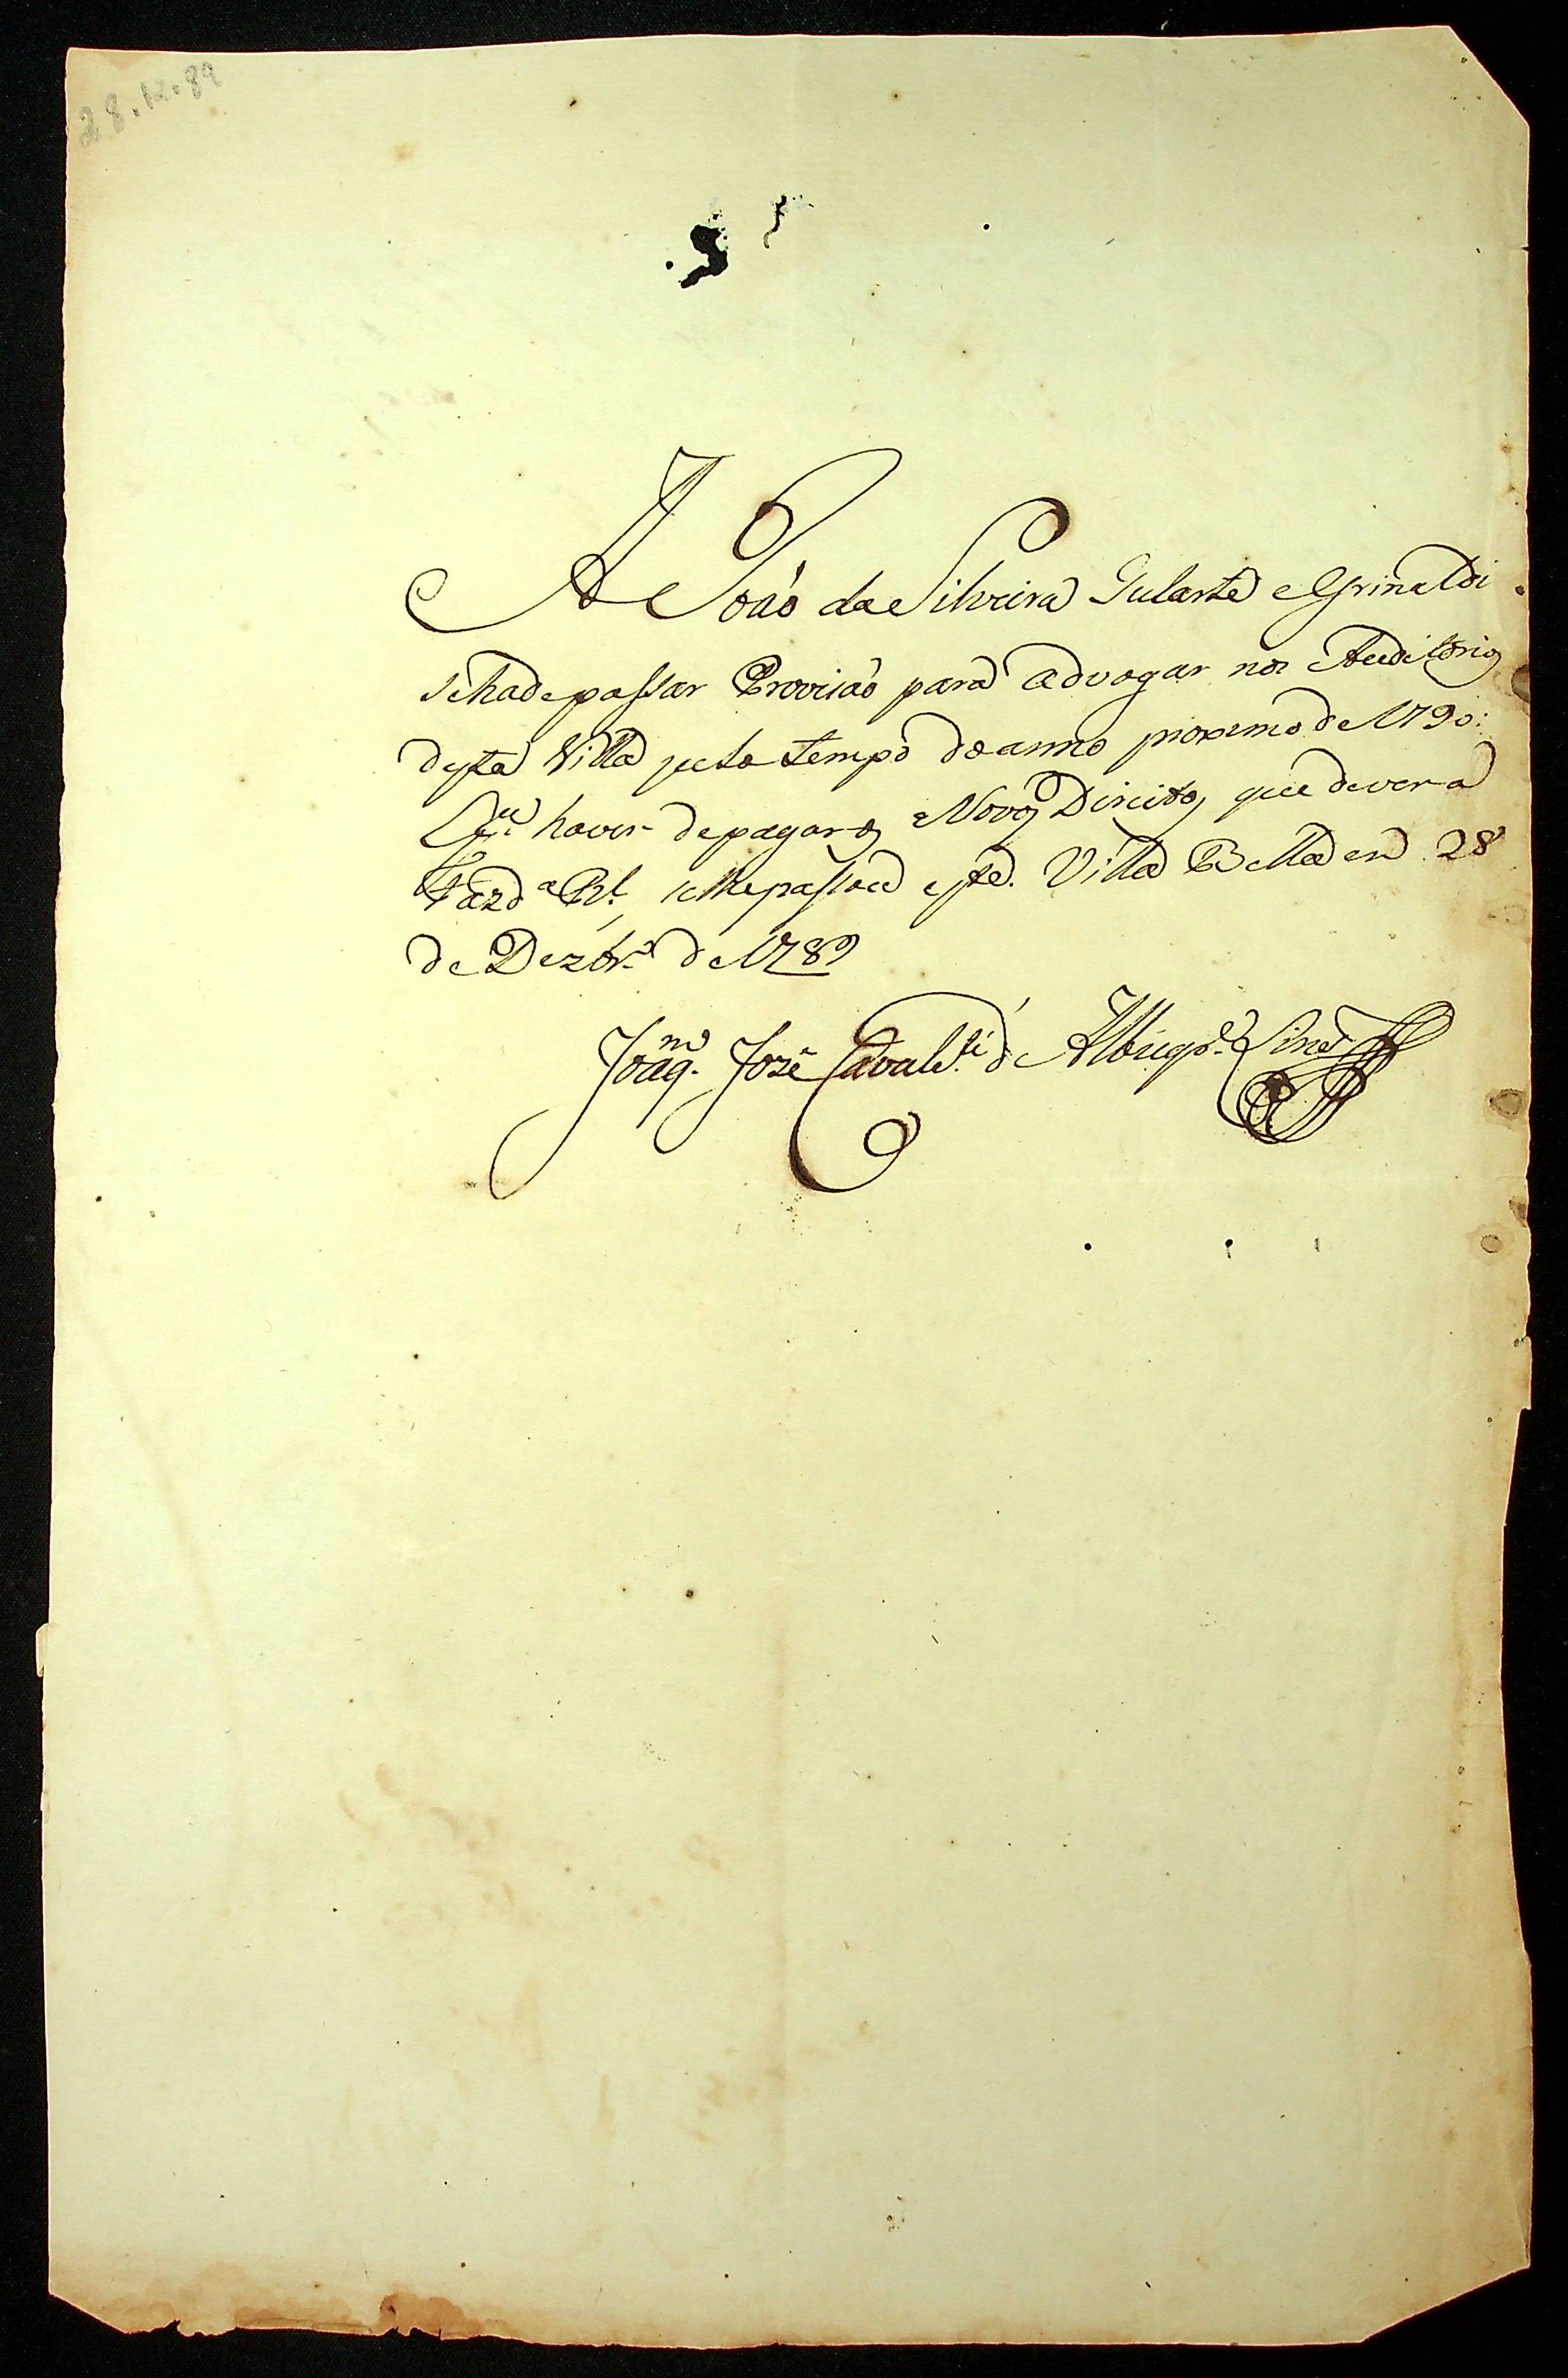 28.12.89
A João da Silveira Gularte e Grinaldi
se hade passar Provizaõ para advogar nos Auditorios
desta Villa pelo tempo do anno proximo de 1790:
E p.ª haver de pagar os Novos Direitos que dever a
Fazd.ª Rl. se lhe passou este. Villa Bella em 28
de Dezbr.º de 1789
Joaq.m José Cavalc.ti d'Albuq.e Lins